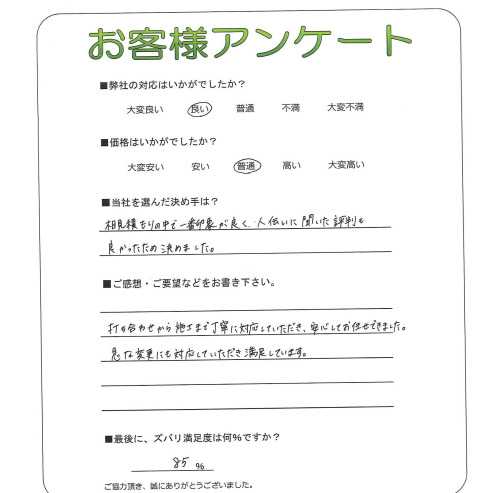 お客様アンケート
■弊社の対応はいかがでしたか？
大変良い 良い 普通 不満 大変不満
■価格はいかがでしたか？
大変安い 安い 普通 高い 大変高い
■当社を選んだ決め手は？
相見積もりの中で一番印象が良く、人伝いに聞いた評判も
良かったため決めました。
■ご感想・ご要望などをお書き下さい。
打ち合わせから施工まで丁寧に対応していただき、安心してお任せできました。
急な変更にも対応していただき満足しています。
■最後に、ズバリ満足度は何%ですか？
85 %
ご協力頂き、誠にありがとうございました。